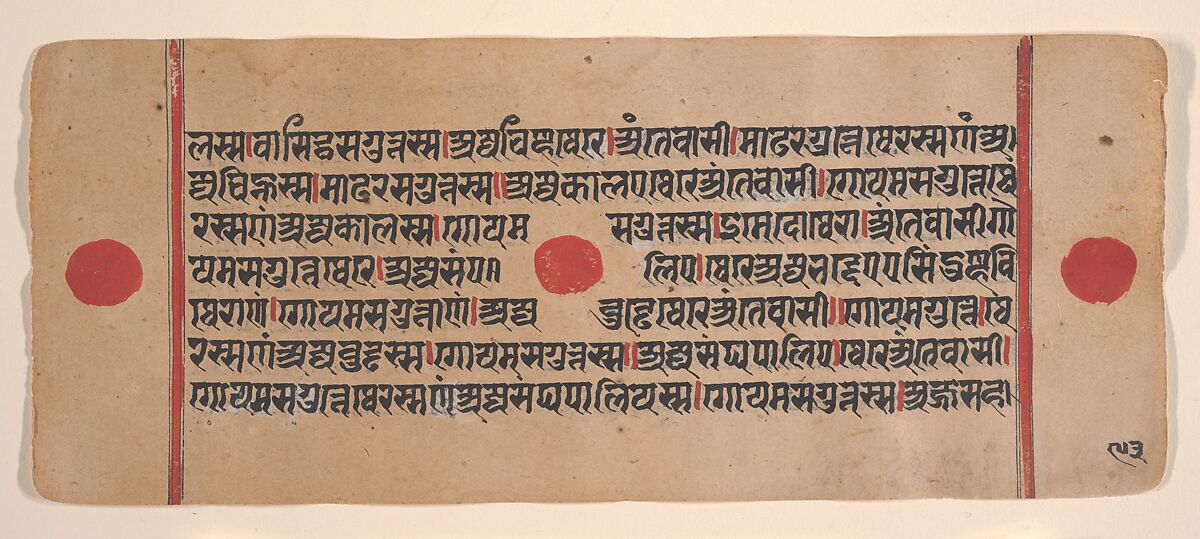 लस्स।वासिट्ठसगुत्तस्स।अज्जविण्हुथेरे।अंतेवासी।माढरगुत्तेथेरस्सणंअ।
ज्जविण्हुस्स।माढरसगुत्तस्स॥अज्जकालएथेरेअंतेवासी॥गोयमसगुत्तेथे
रस्सणंअज्जकालस्स।गोयम सगुत्तस्स।इमेदोथेरा।अंतेवासीगो
यमसगुत्तेथेरे।अज्जसंप॥ लिएथेरेअज्जभद्देएएसिंदुण्हवि
थेराणं।गोयमसगुत्ताणं।अज्ज वुड्ढेथेरेअंतेवासी॥गोयमगुत्तेथे
रस्सणंअज्जवुड्ढस्स।गोयमसगुत्तस्स॥अज्जसंघपालिएथेरेअंतेवासी।
गोयमसगुत्तेथेरस्सणंअज्जसंघपालियस्स।गोयमसगुत्तस्स।